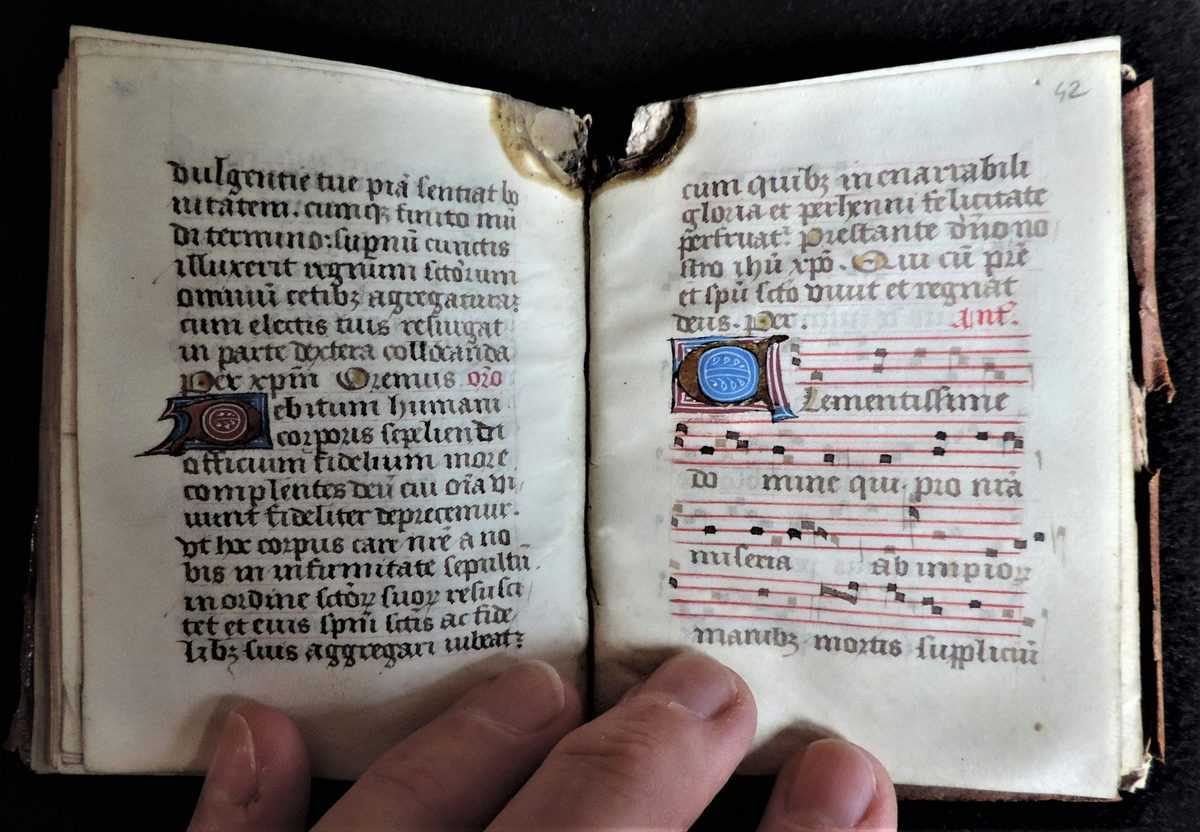 dulgentie tue piã sentiat bo
nitatem. cumqꝫ finito mũ
di termino: suꝑnũ cunctis
illuxerit regnum sctõrum
omniũ cetibꝫ agregaturaꝫ
cum electis tuis resurgat
in parte dextera collocanda
Per xpm̃ Oremus oro᷉
Debitum humani
corporis sepeliendi
officium fidelium more
complentes deũ cui oĩa vi
uunt fideliter deprecemur.
vt hoc corpus carẽ nrẽ a no
bis in infirmitate sepultũ.
in ordine sctõꝝ suoꝝ resusci
tet et eius spm̃ sctĩs ac fide
libꝫ suis aggregari iubeatꝫ
42
cum quibꝫ inenarrabili
gloria et perhenni felicitate
perfruatꝰ Prestante dño no
stro ihũ xpõ. Qui cũ prẽ
et spũ sctõ viuit et regnat
deus. Per. Ant᷉.
Clementissime
do mine qui pro nr̃a
miseria ab impioꝝ
manibꝫ mortis suppliciũ